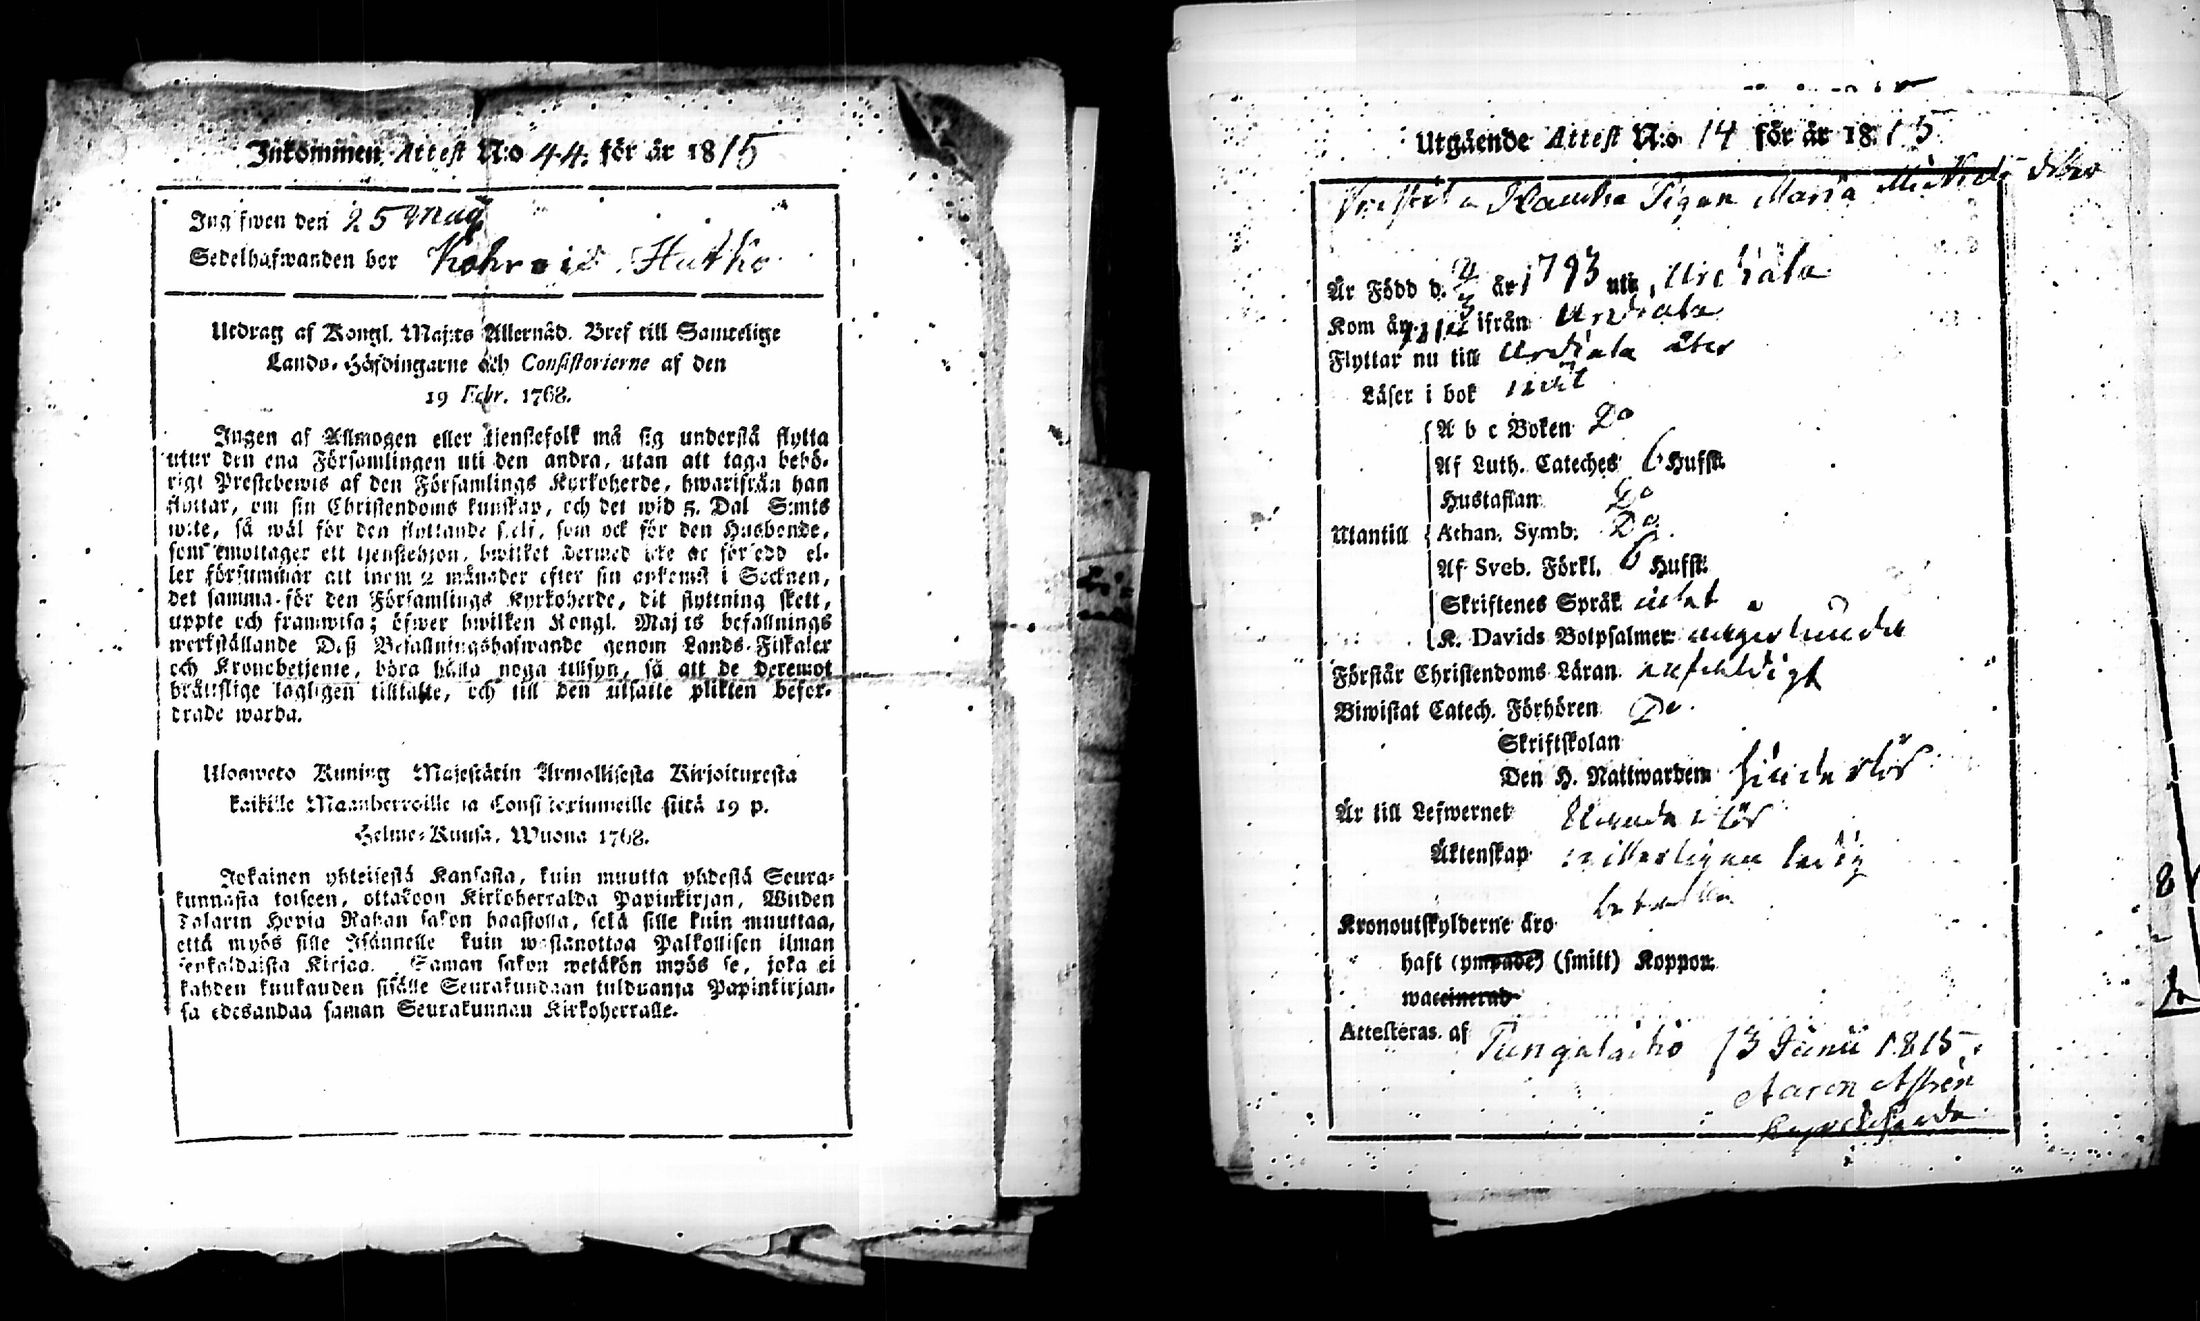 Inkommen Attest N:o 44. för år 1815
Ingifwen den 25 Maij
Sedelhafwanden bor Hutko
Utdrag af Kongl. Maj:ts Allernåd. Bref till Samtelige
Lands-Höfdingarne och Consistorierne af den
19 Febr. 1768.
Ingen af Allmogen eller tjenstefolk må sig understå flytta
utur den ena Församlingen uti den andra, utan att taga behö-
rigt Prestebewis af den Församlings Kyrkoherde, hwarifrån han
flyttar, om sin Christendoms kunskap, och det wid 5. Dal S:mts
wite, så wäl för den flyttande sjelf, som ock för den Husbonde,
som emottager ett tjenstehjon, hwilket dermed icke är försedt el-
ler försummar att inom 2 månader efter sin ankomst i Socknen,
det samma för den Församlings Kyrkoherde, dit flyttning skett,
uppte och framwisa; öfwer hwilken Kongl. Maj:ts befallnings
werkställande Deß Befallningshafwande genom Lands-Fiskaler
och Kronobetjente, böra hålla noga tillsyn, så att de deremot
bråttslige lagligen tilltalte, och till den utsatte plikten befor-
drade warda.
Ulosweto Kuning Majestätin Armollisesta Kirjoituxesta
kaikille Maanherroille ja Consistoriumeille siitä 19 p.
Helme-Kuusa, Wuona 1768.
Jokainen yhteisestä Kansasta, kuin muutta yhdestä Seura-
kunnasta toiseen, ottakoon Kirkoherralda Papinkirjan, Wiiden
Talarin Hopia Rahan sakon haastolla, sekä sille kuin muuttaa,
että myös sille Isännelle kuin wastanottaa Palkollisen ilman
senkaldaista Kirjaa. Saman sakon wetäkön myös se, joka ei
kahden kuukauden sisälle Seurakundaan tulduansa Papinkirjan-
sa edesandaa saman Seurakunnan Kirkoherralle.
Utgående Attest N:o 14 för år 1815
Pigan Maria
Är Född d. år 1793 uti Urdiala
Kom år ifrån Urdiala
Flyttar nu till Urdiala åter
Läser i bok
A b c Boken Do
Af Luth. Cateches 6 Hufst.
Hustaflan Do
Utantill Athan. Symb. Do
Af Sveb. Förkl. 6 Hufst.
Skriftenes Språk
K. Davids Botpsalmer
Förstår Christendoms Läran enfaldigt
Biwistat Catech. Förhören Do
Skriftskolan
Den H. Nattwarden
Är till Lefwernet
Äktenskap ledig
Kronoutskylderne äro
haft (ympade) (smitt) Koppor.
waccinerad
Attesteras af Pungalaitio 13 Junii 1815.
Aaron